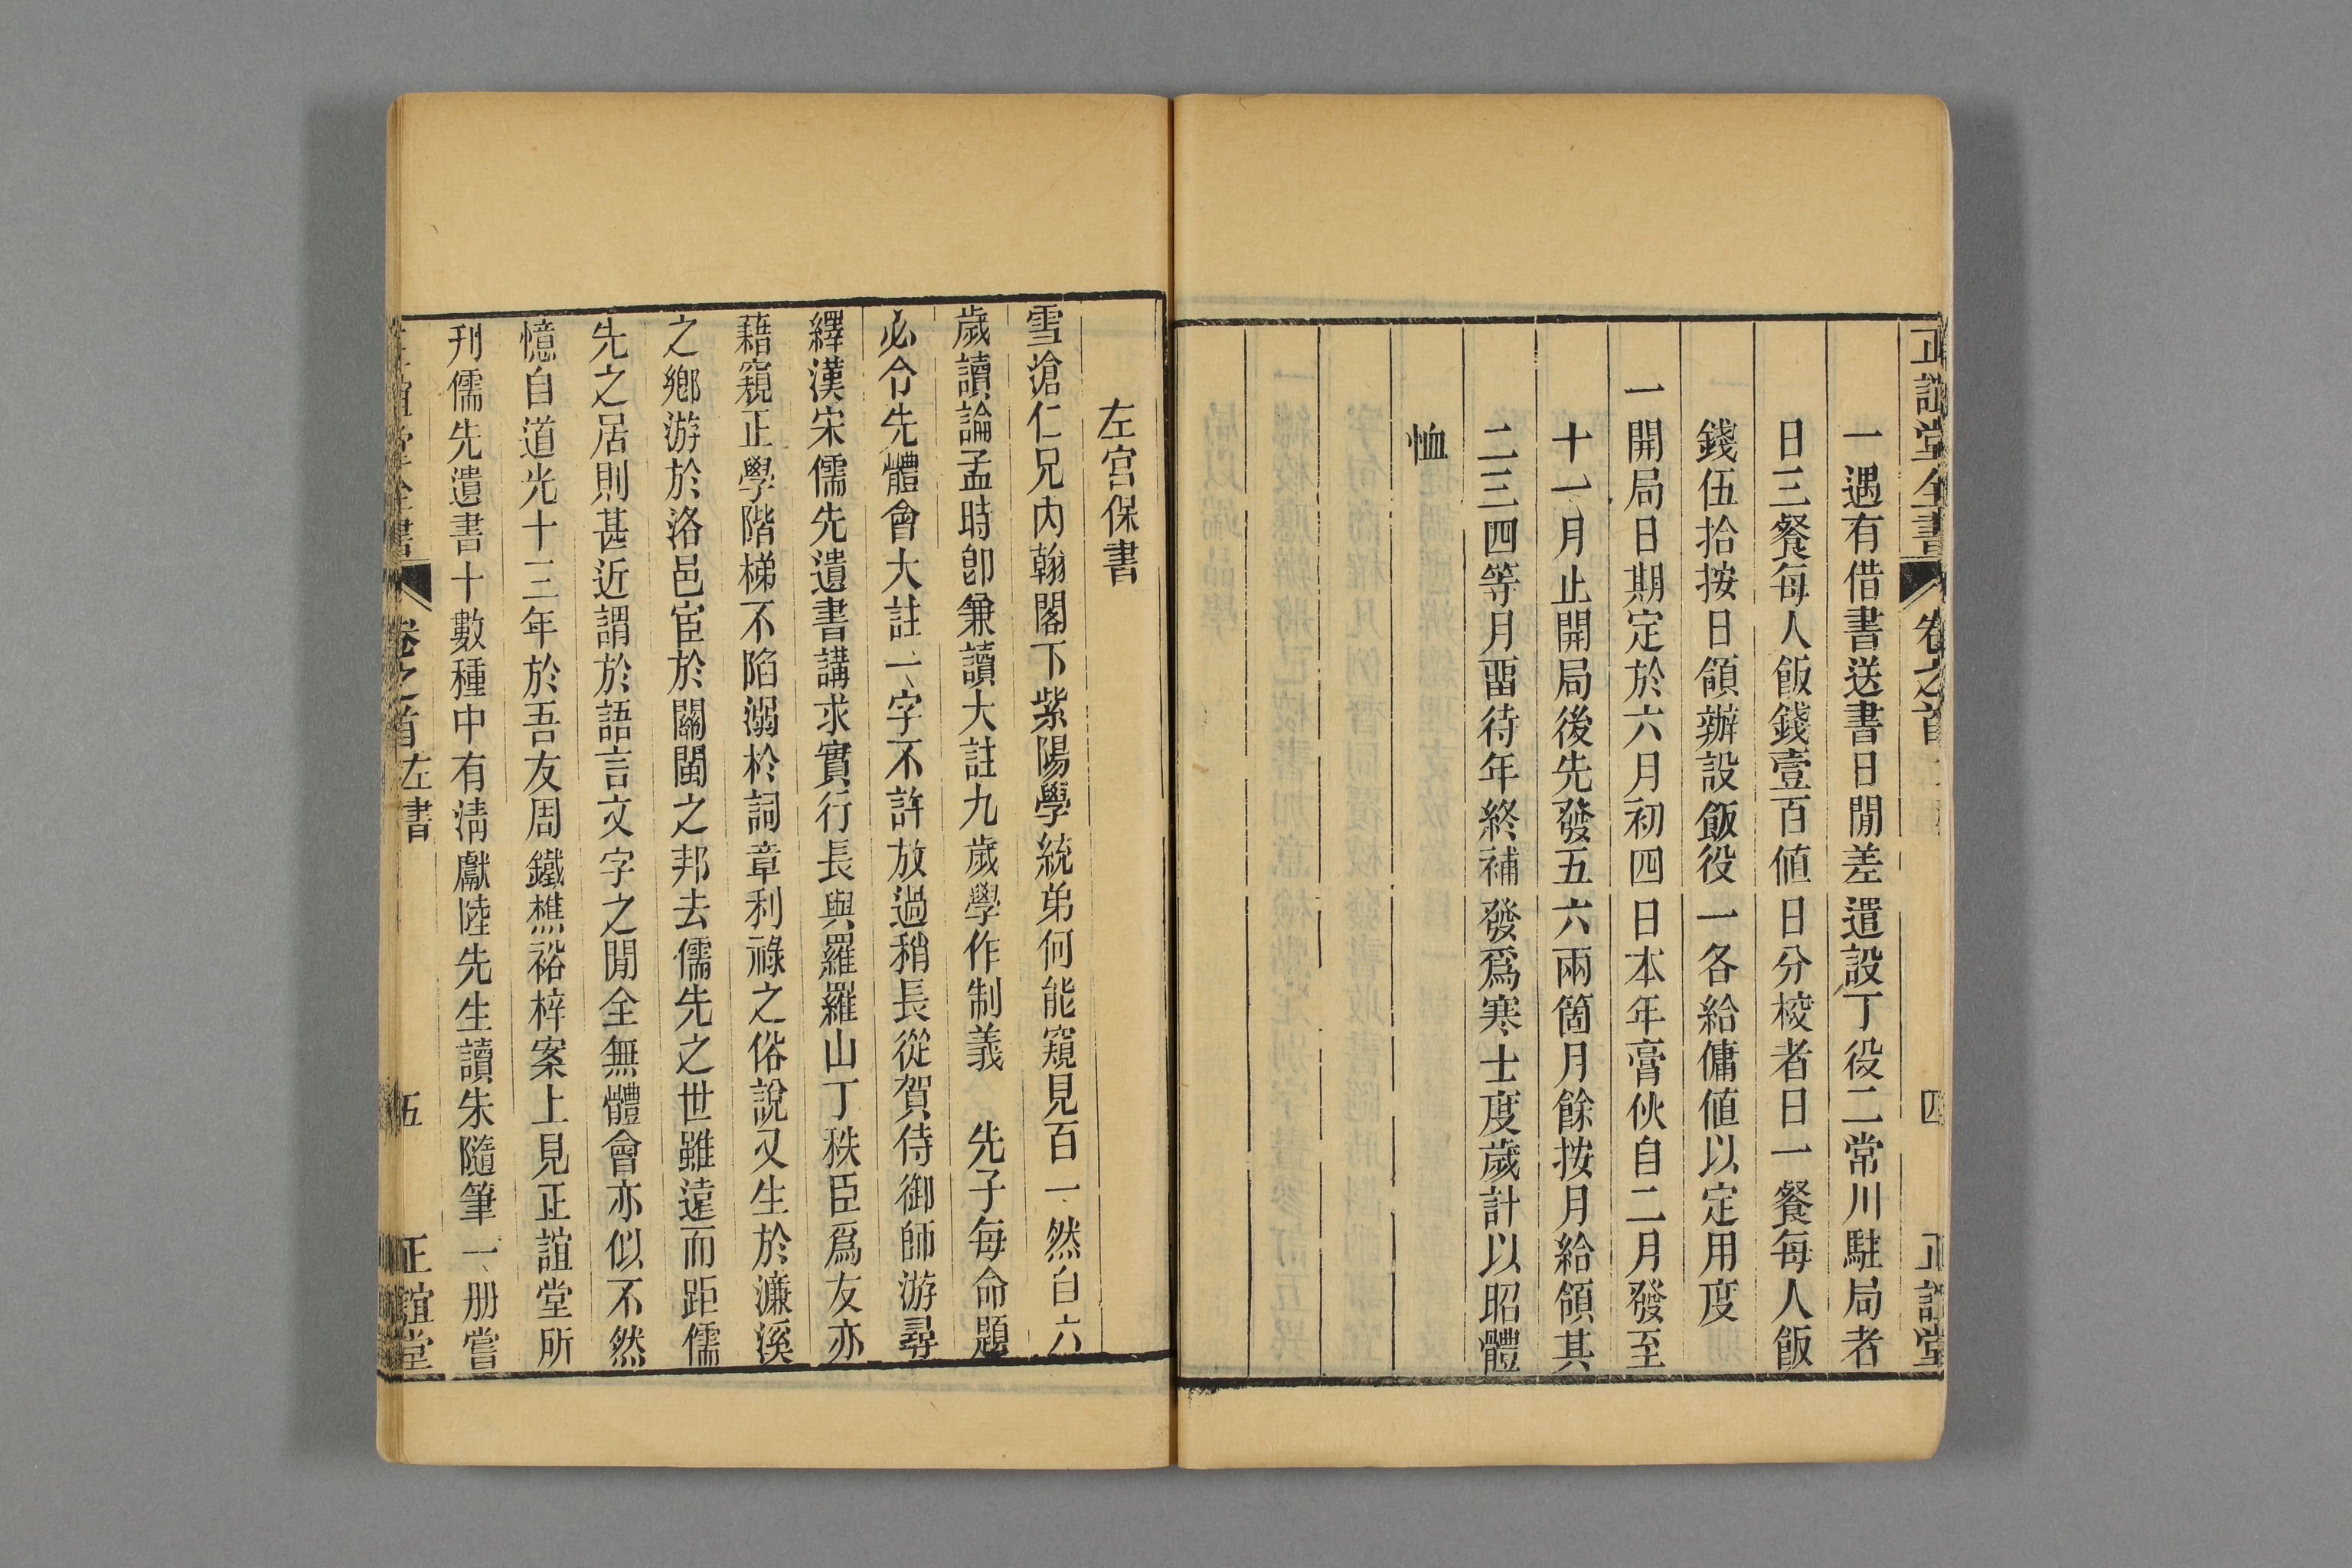 正誼堂全書 卷之首 四 正誼堂
一遇有借書送書日閒差遣設丁役二常川駐局者
日三餐每人飯錢壹百値日分校者日一餐每人飯
錢伍拾按日領辦設飯役一各給傭値以定用度
一開局日期定於六月初四日本年膏伙自二月發至
十一月止開局後先發五六兩箇月餘按月給領其
二三四等月畱待年終補發爲寒士度歲計以昭體
恤
左宮保書
雪滄仁兄內翰閣下紫陽學統弟何能窺見百一然自六
歲讀論孟時卽兼讀大註九歲學作制義　先子每命題
必令先體會大註一字不許放過稍長從賀侍御師游尋
繹漢宋儒先遺書講求實行長與羅羅山丁秩臣爲友亦
藉窺正學階梯不陷溺於詞章利祿之俗說又生於濂溪
之鄕游於洛邑宦於關閩之邦去儒先之世雖遠而距儒
先之居則甚近謂於語言文字之閒全無體會亦似不然
憶自道光十三年於吾友周鐵樵裕梓案上見正誼堂所
刋儒先遺書十數種中有淸獻陸先生讀朱隨筆一册嘗
正誼堂全書 卷之首 左書 五 正誼堂